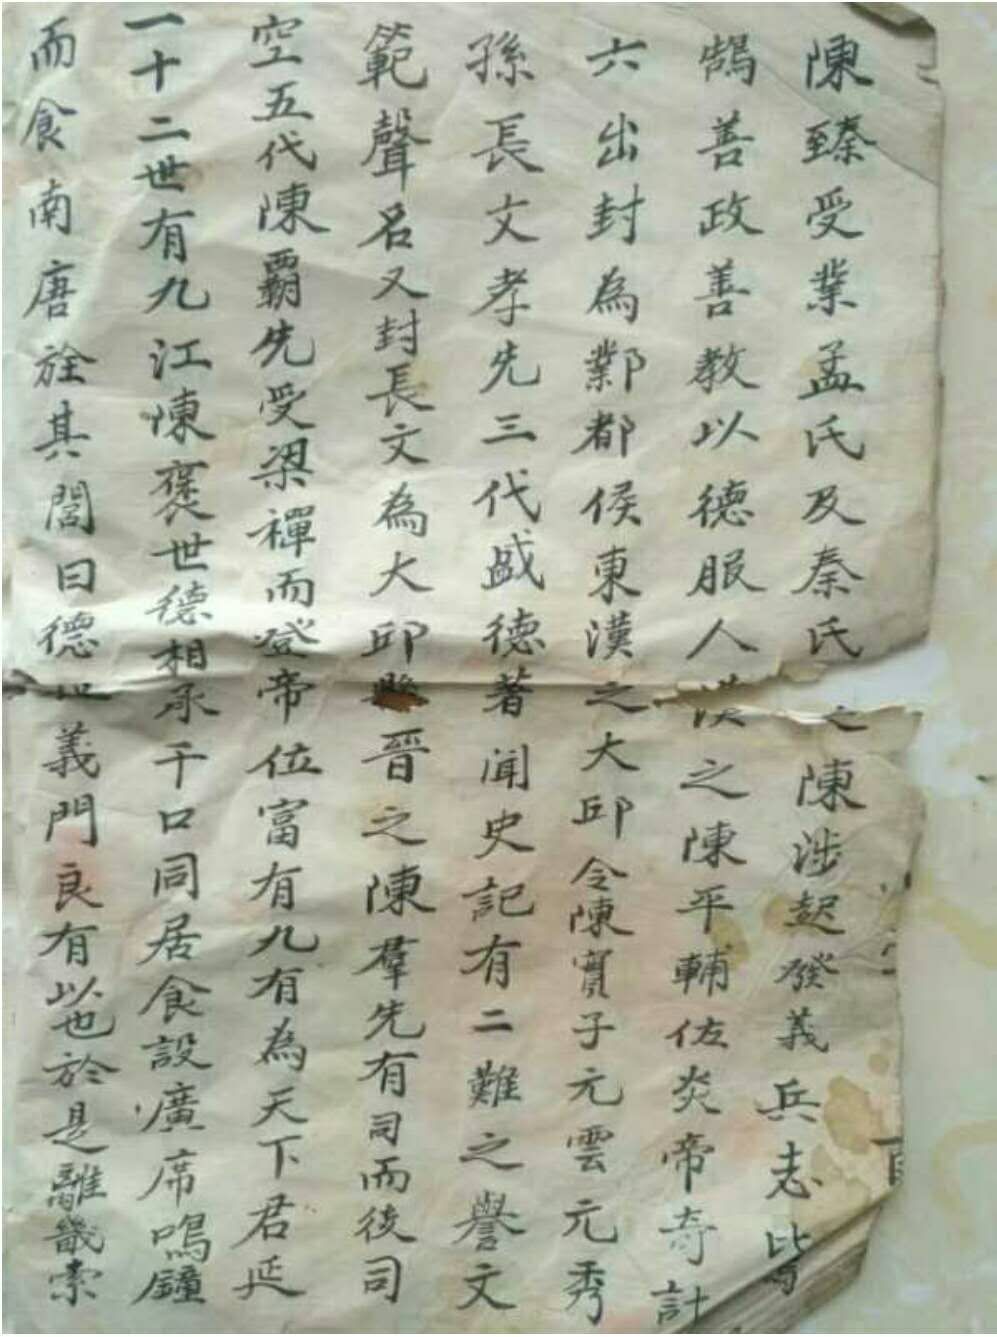 陳臻受業孟氏及秦氏之陳涉起發義兵志
鵠善政善教以德服人漢之陳平輔佐炎帝奇計
六出封為鄴都侯東漢之大邱令陳實子元雲元秀
孫長文孝先三代盛德著聞史記有二難之譽文
範聲名又封長文為大邱縣晉之陳羣先有司而後司
空五代陳霸先受梁禪而登帝位富有九有為天下君延
一十二世有九江陳褒世德相承千口同居食設廣席鳴鐘
而食南唐旌其閭曰德世義門良有以也於是離畿索